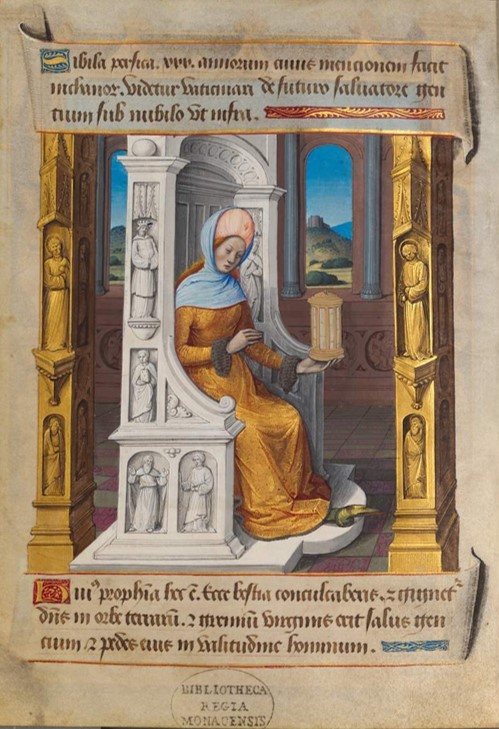 Sibila persica. xxx. annorum cuius mencionem facit
nichanor. videtur vaticinari de futuro salvatore gen
tium sub nubilo vt infra.
Cuiꝰ prophīa hec ē. Ecce bestia conculcaberis. ⁊ gignet᷑
dn̄s in orbe terrarū. ⁊ gremiū virginis erit salus gen
tium ⁊ pedes eius in valitudine hominum.
BIBLIOTHECA
REGIA
MONACENSIS